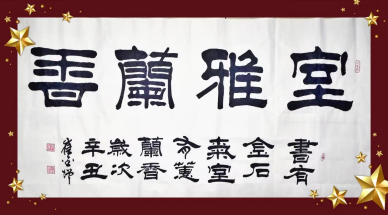 室雅蘭香
書有
金石
氣室
有蕙
蘭香
歲次
辛丑